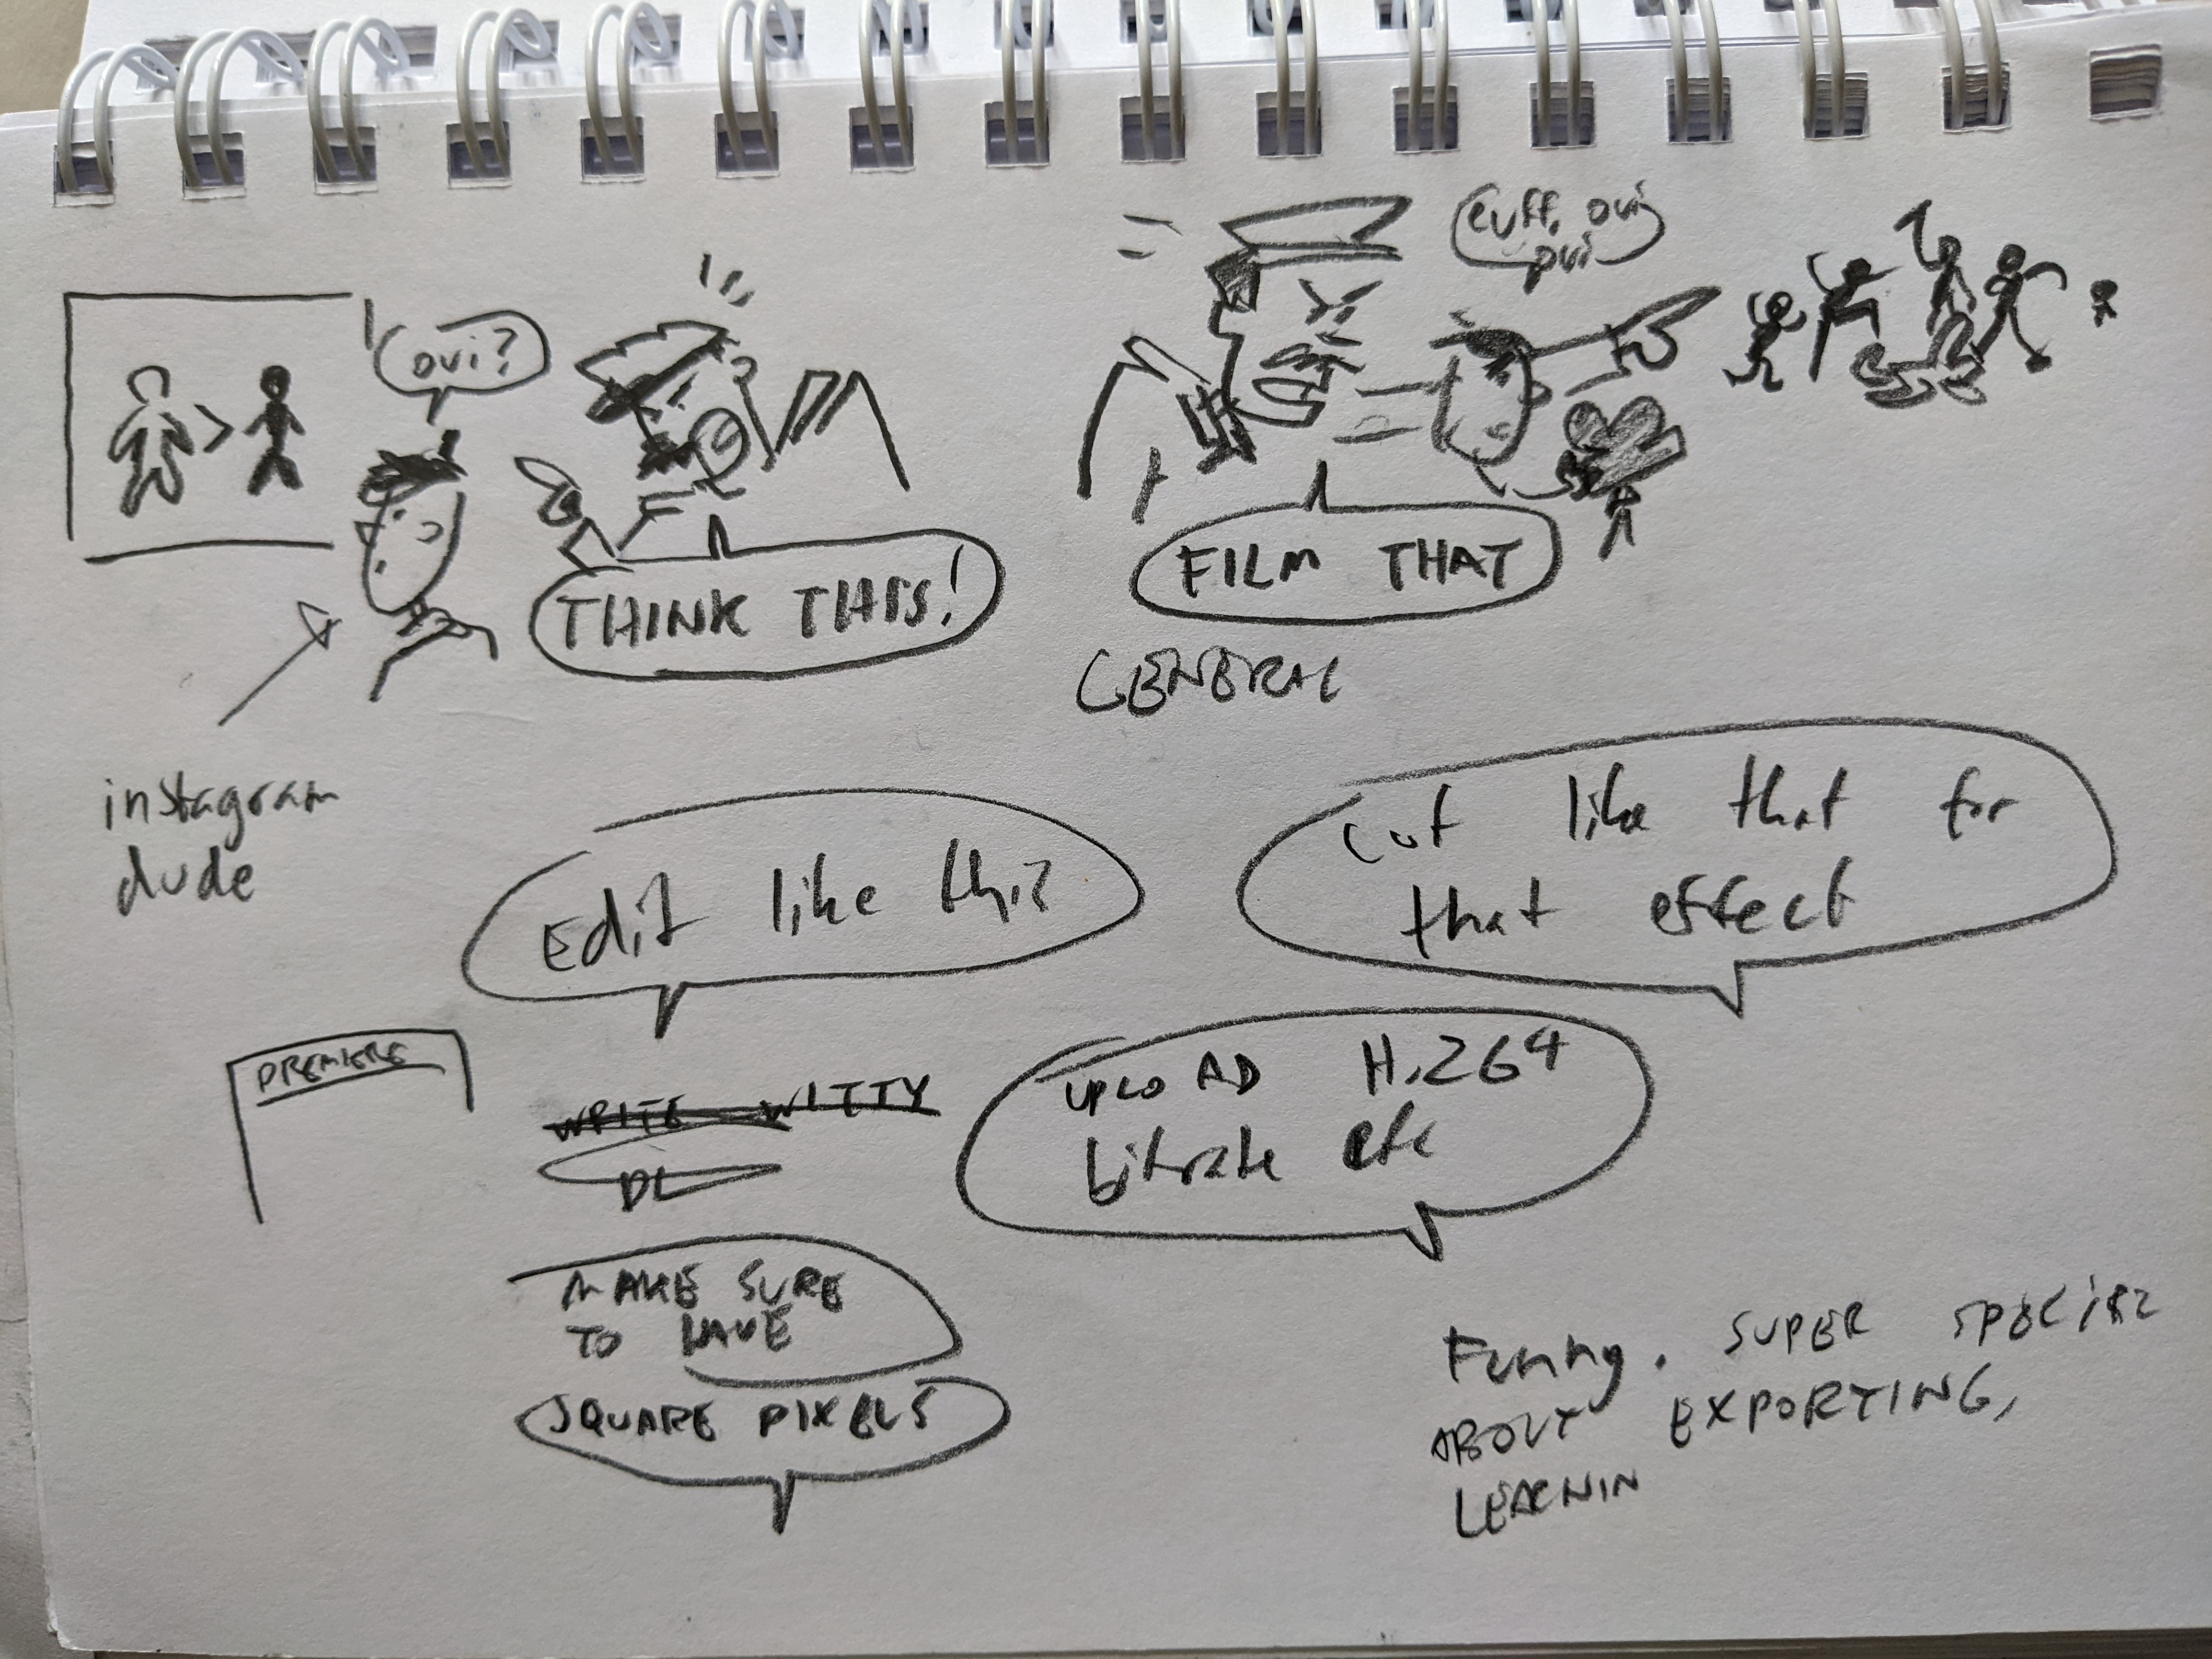 oui?
euff, oui
oui
THINK THIS!
FILM THAT
GENERAL
instagram
dude
Edit like this
cut like that for
that effect
PREMIERE
WRITE WITTY
DL
UPLOAD H.264
bitrate etc
MAKE SURE
TO HAVE
SQUARE PIXELS
Funny. SUPER
ABOUT EXPORTING,
LEARNIN